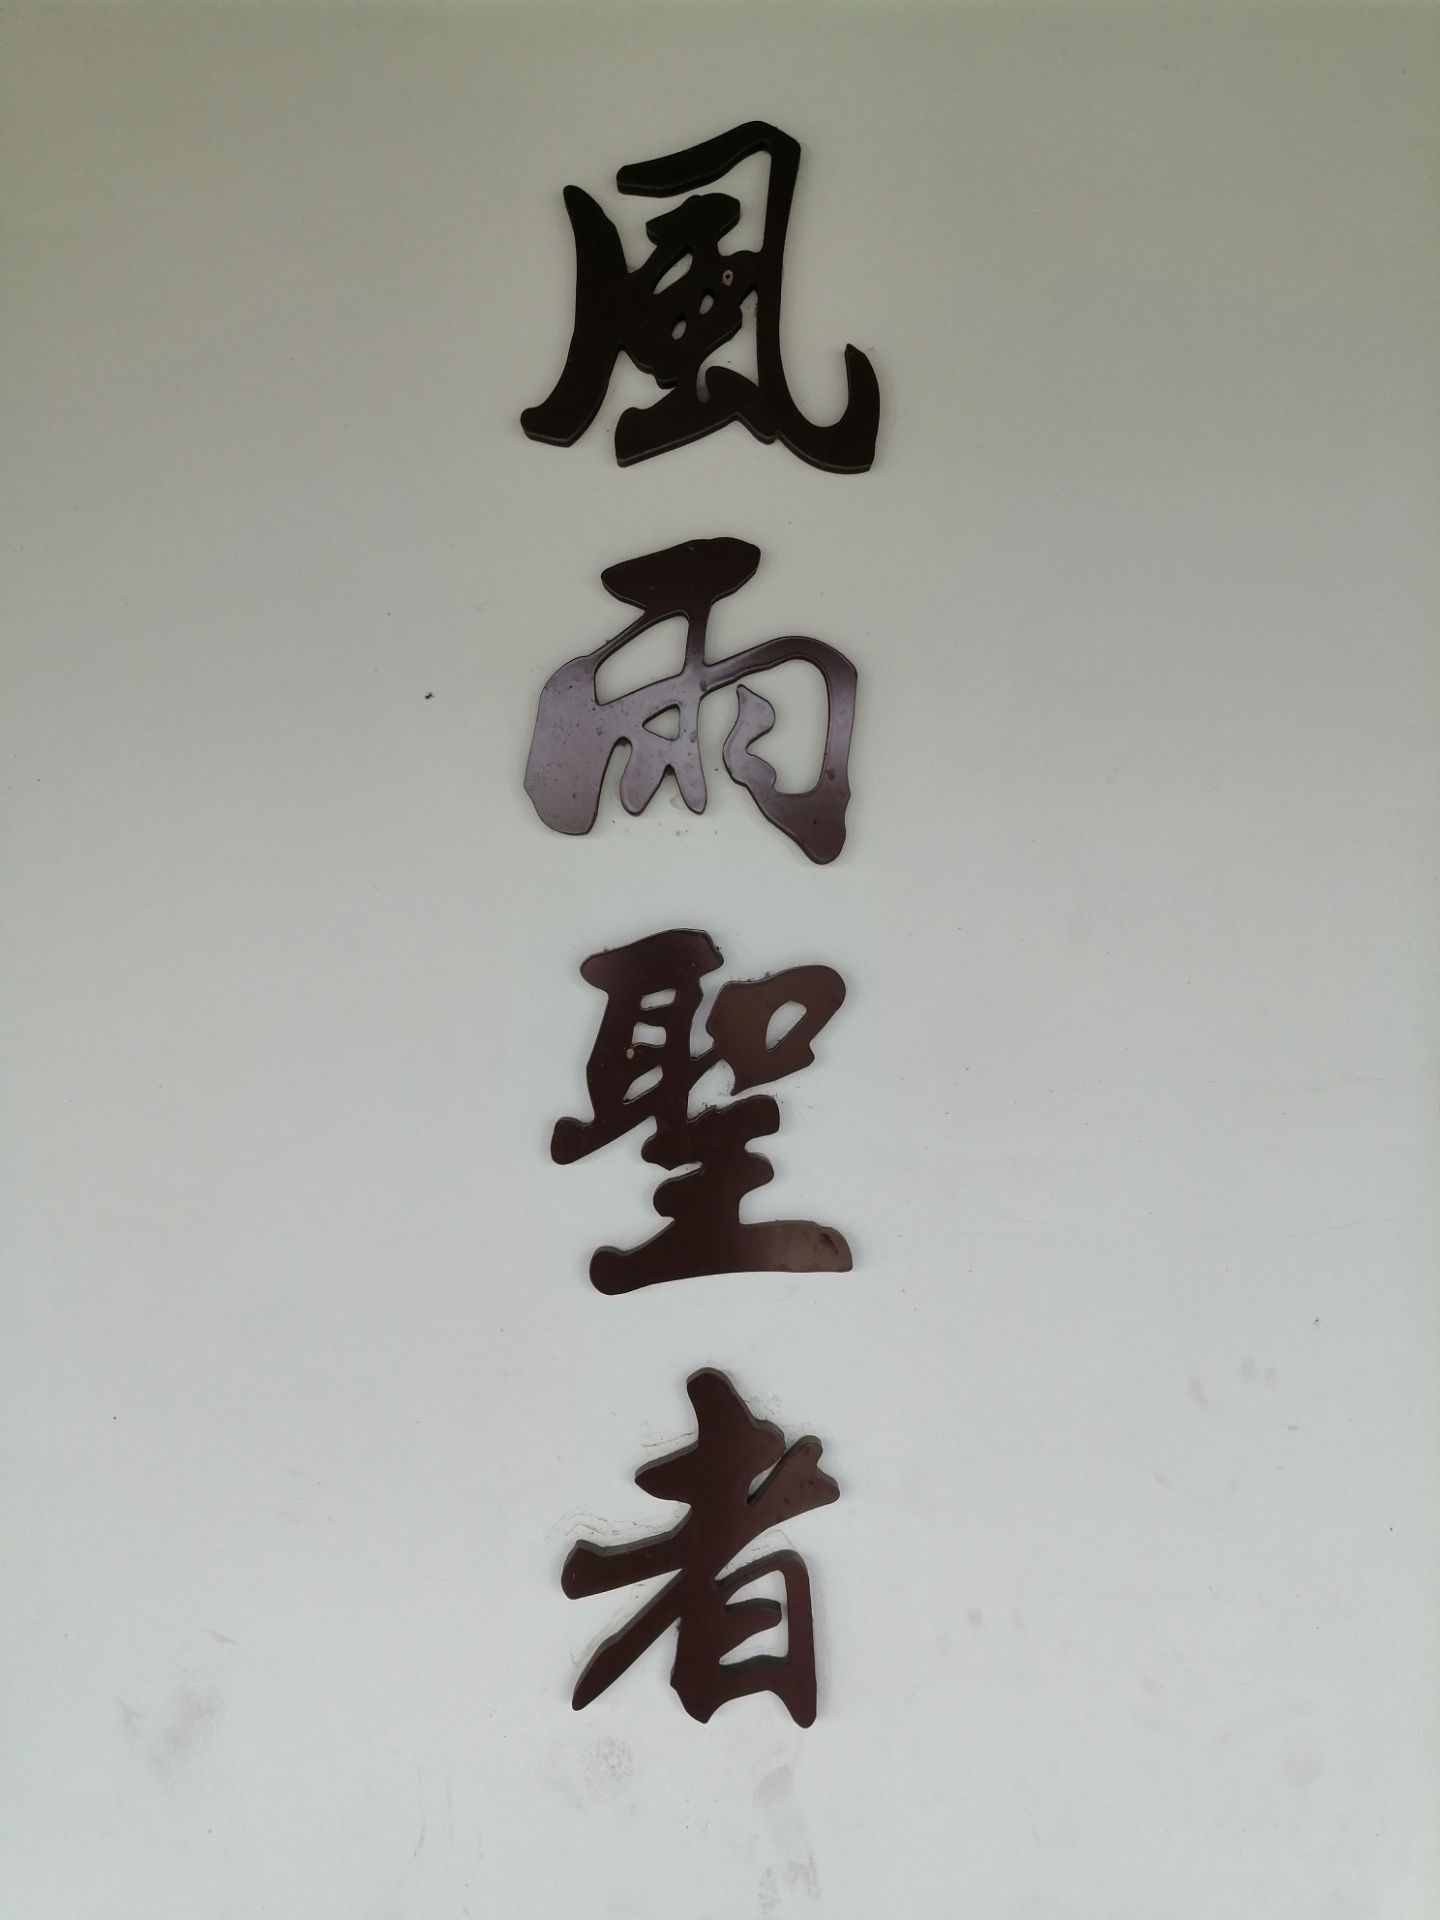 風雨聖者